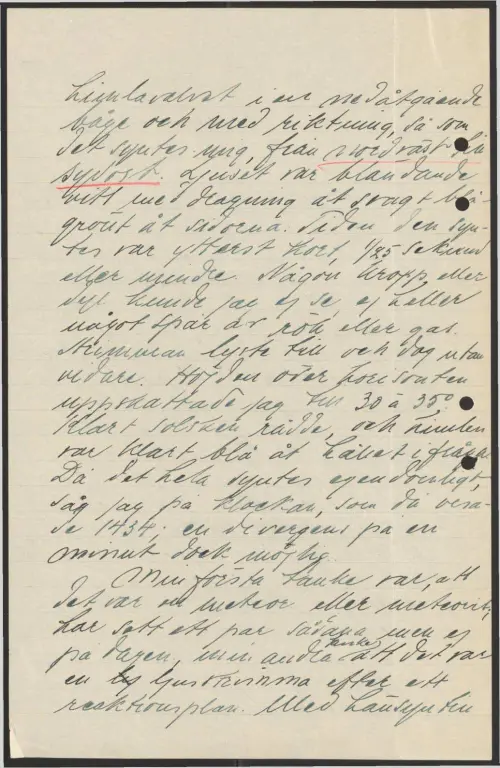 himlavalvet i en nedåtgående
båge och med riktning, så som
det syntes mig, från nordväst till
sydost. Ljuset var bländande
vitt med dragning åt svagt blå-
grönt åt sidorna. Tiden den syn-
tes var ytterst kort, 1/25 sekund
eller mindre. Någon kropp eller
dyl kunde jag ej se, ej heller
något spår av rök eller gas.
Strimman lyste till och dog utan
vidare. Höjden över horisonten
uppskattade jag till 30 à 35°.
Klart solsken rådde, och himlen
var klart blå åt hållet i fråga.
Då det hela syntes egendomligt,
såg jag på klockan, som då visa-
de 1434; en divergens på en
minut dock möjlig.
Min första tanke var, att
det var en meteor eller meteorit,
har sett ett par sådana men ej
på dagen, min andra tanke att det var
en ljusstrimma efter ett
reaktionsplan. Med hänsyn till